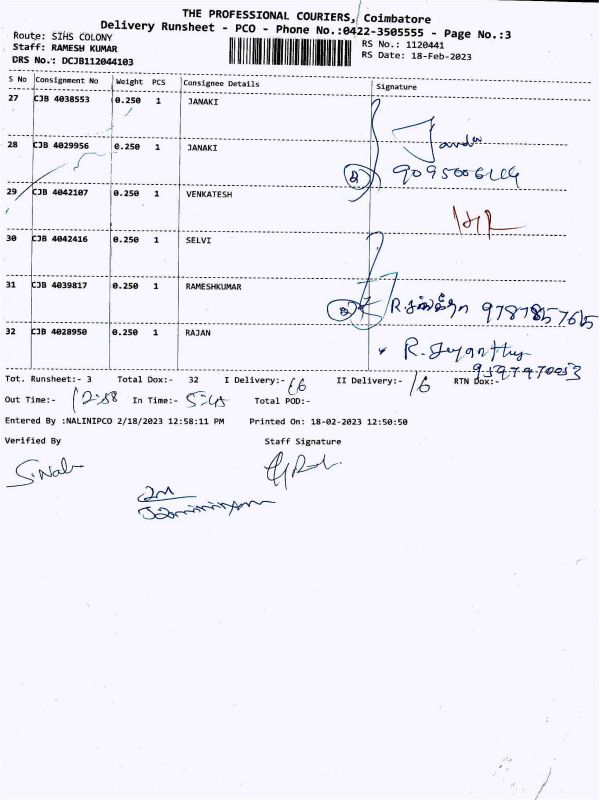 THE PROFESSIONAL COURIERS, Coimbatore
Delivery Runsheet - PCO - Phone No.:0422-3505555 - Page No.:3
Route: SIHS COLONY
Staff: RAMESH KUMAR
DRS No.: DCJB112044103
RS No.: 1120441
RS Date: 18-Feb-2023
S No Consignment No Weight PCS Consignee Details Signature
27 CJB 4038553 0.250 1 JANAKI
28 CJB 4029956 0.250 1 JANAKI
29 CJB 4042107 0.250 1 VENKATESH
30 CJB 4042416 0.250 1 SELVI
31 CJB 4039817 0.250 1 RAMESHKUMAR
32 CJB 4028950 0.250 1 RAJAN
R. Jeyanthy
Tot. Runsheet:- 3 Total Dox:- 32 I Delivery:- 16 II Delivery:- 16 RTN Dox:-
Out Time:- 12:58 In Time:- 5:45 Total POD:-
Entered By :NALINIPCO 2/18/2023 12:58:11 PM Printed On: 18-02-2023 12:50:50
Verified By Staff Signature
S.Nal